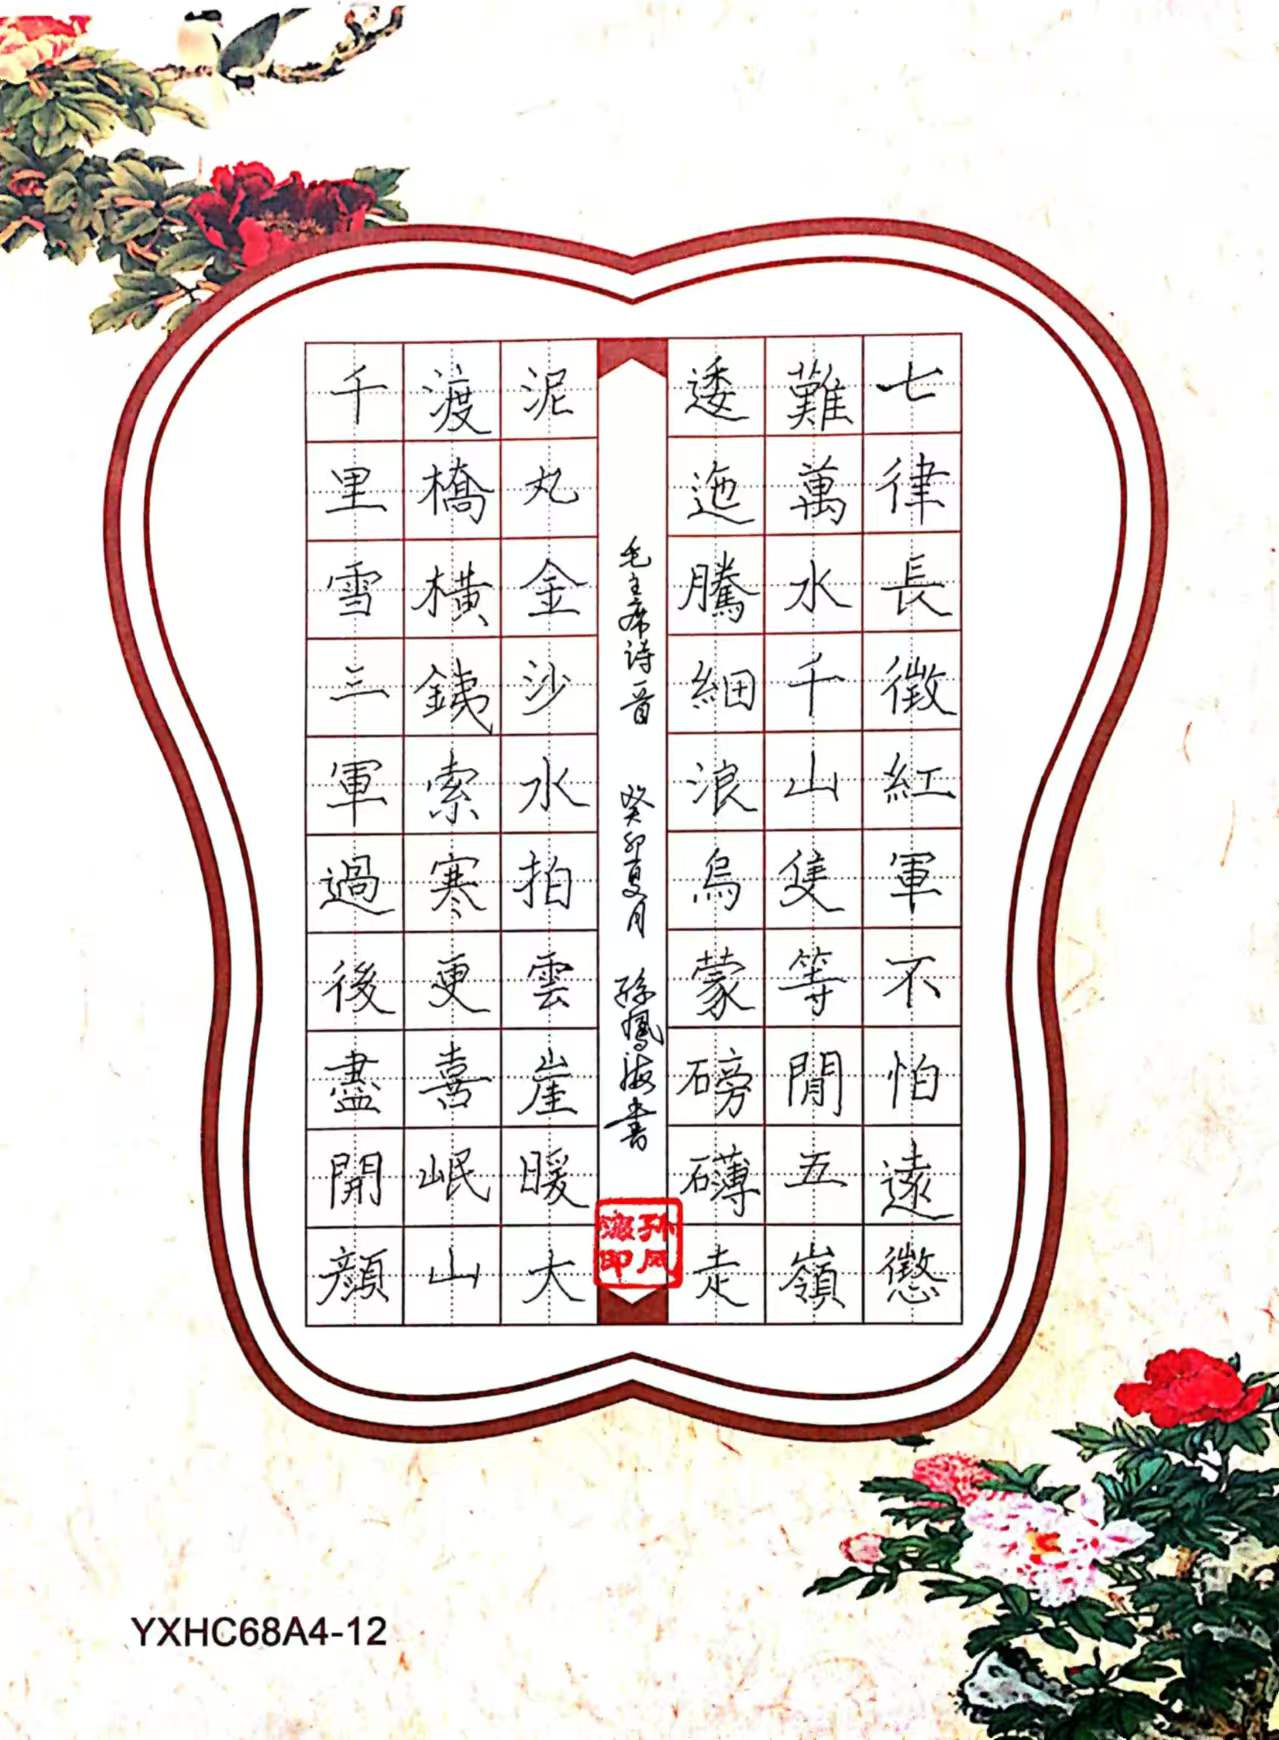 七律長徵紅軍不怕遠懲
難萬水千山隻等閒五嶺
逶迤騰細浪烏蒙磅礴走
泥丸金沙水拍雲崖暖大
渡橋橫銕索寒更喜岷山
千里雪三軍過後盡開顏
毛主席诗一首 癸卯夏月 孫鳳海書
孙凤海印
YXHC68A4-12